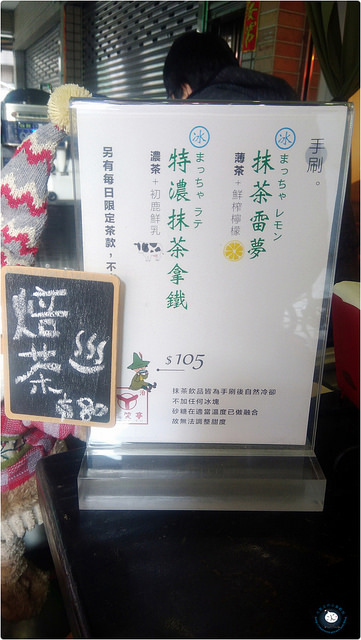 手刷。
冰
まっちゃ レモン
抹茶雷夢
薄茶+鮮榨檸檬
冰
まっちゃ ラテ
特濃抹茶拿鐵
濃茶+初鹿鮮乳
另有每日限定茶款，不
$105
抹茶飲品皆為手刷後自然冷卻
不加任何冰塊
砂糖在適當溫度已做融合
故無法調整甜度
焙茶
$80